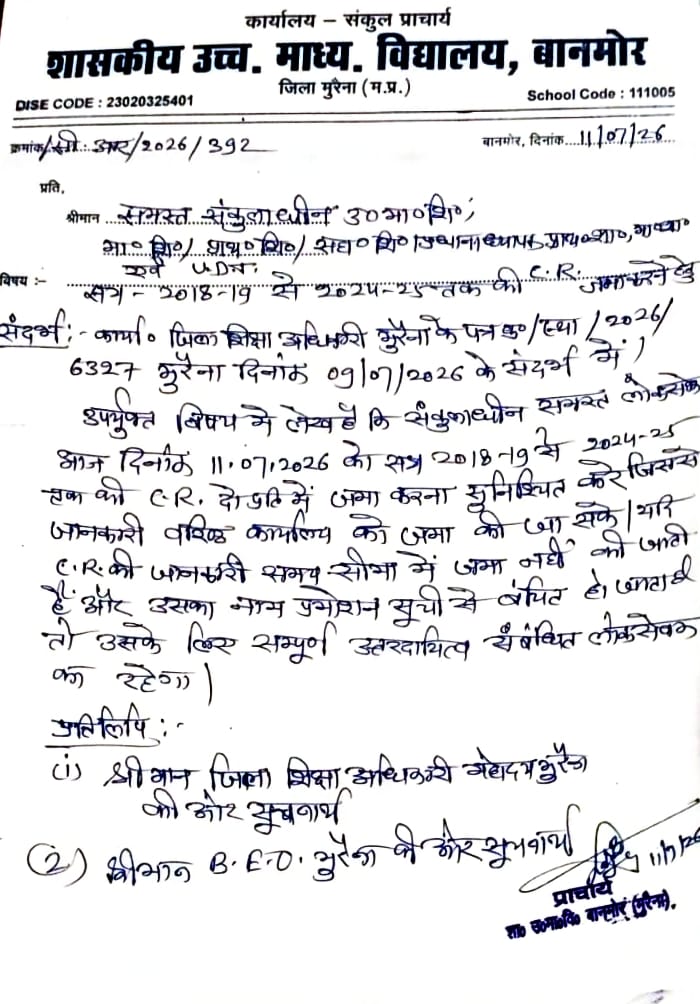 कार्यालय – संकुल प्राचार्य
शासकीय उच्च. माध्य. विद्यालय, बानमोर
जिला मुरैना (म.प्र.)
DISE CODE : 23020325401
School Code : 111005
क्रमांक/सी. आर/2026/392
बानमोर, दिनांक...11/07/26
प्रति,
श्रीमान समस्त संकुलाधीन उ०मा०शि०,
मा० शि०/ प्राथ० शि०/ सहा० शि०/ प्रधानाध्यापक प्राथ०शा०, मा०शा०
एवं U.D.T.
विषय :- सत्र - 2018-19 से 2024-25 तक की C.R. जमा करने हेतु
संदर्भ :- कार्या० जिला शिक्षा अधिकारी मुरैना के पत्र क्र०/स्था/2026/
6327 मुरैना दिनांक 09/07/2026 के संदर्भ में।
उपर्युक्त विषय में लेख है कि संकुलाधीन समस्त लोकसेवक
आज दिनांक 11.07.2026 को सत्र 2018-19 से 2024-25
तक की C.R. दो प्रति में जमा करना सुनिश्चित करे जिससे
जानकारी वरिष्ठ कार्यालय को जमा की जा सके। यदि
C.R. की जानकारी समय-सीमा में जमा नहीं की जाती
है और उसका नाम प्रमोशन सूची से वंचित हो जाता है
तो उसके लिए सम्पूर्ण उत्तरदायित्व संबंधित लोकसेवक
का रहेगा।
प्रतिलिपि :-
(1) श्रीमान जिला शिक्षा अधिकारी महोदय मुरैना
की ओर सूचनार्थ
(2) श्रीमान B.E.O. मुरैना की ओर सूचनार्थ
11/7/26
प्राचार्य
शा० उ०मा०वि० बानमोर (मुरैना).